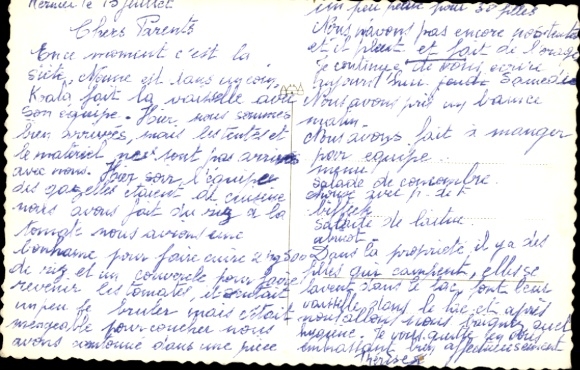 le 15 juillet
Chers Parents
En ce moment c'est la
sieste, Nonne est dans un coin,
Koala fait la vaisselle avec
son équipe. Hier, nous sommes
bien arrivées, mais les tentes et
le matériel ne sont pas arrivés
avec nous. Hier soir l'équipe
des gazelles étaient de cuisine
nous avons fait du riz à la
tomate nous avions une
bonhame pour faire cuire 2 kg 500
de riz et un couvercle pour faire
revenir les tomates, il était
un peu brulé mais était
mangeable pour coucher nous
avons dans une pièce
un peu petite pour 30 filles
Nous n'avons pas encore nos tentes
et il pleut et fait de l'orage
Je continue de vous écrire
aujourd'hui Samedi
Nous avons pris un bain ce
matin.
Nous avons fait à manger
par équipe.
menu
salade de concombre
avec p. de t
bifteck
salade de laitue
abricot
Dans la propriété il y a des
filles qui campent, elles se
lavent dans le lac, font leur
vaisselle dans le lac et après
nous allons nous baigner quel
hygiène. Je vous quitte en vous
embrassant bien affectueusement
Thérèse